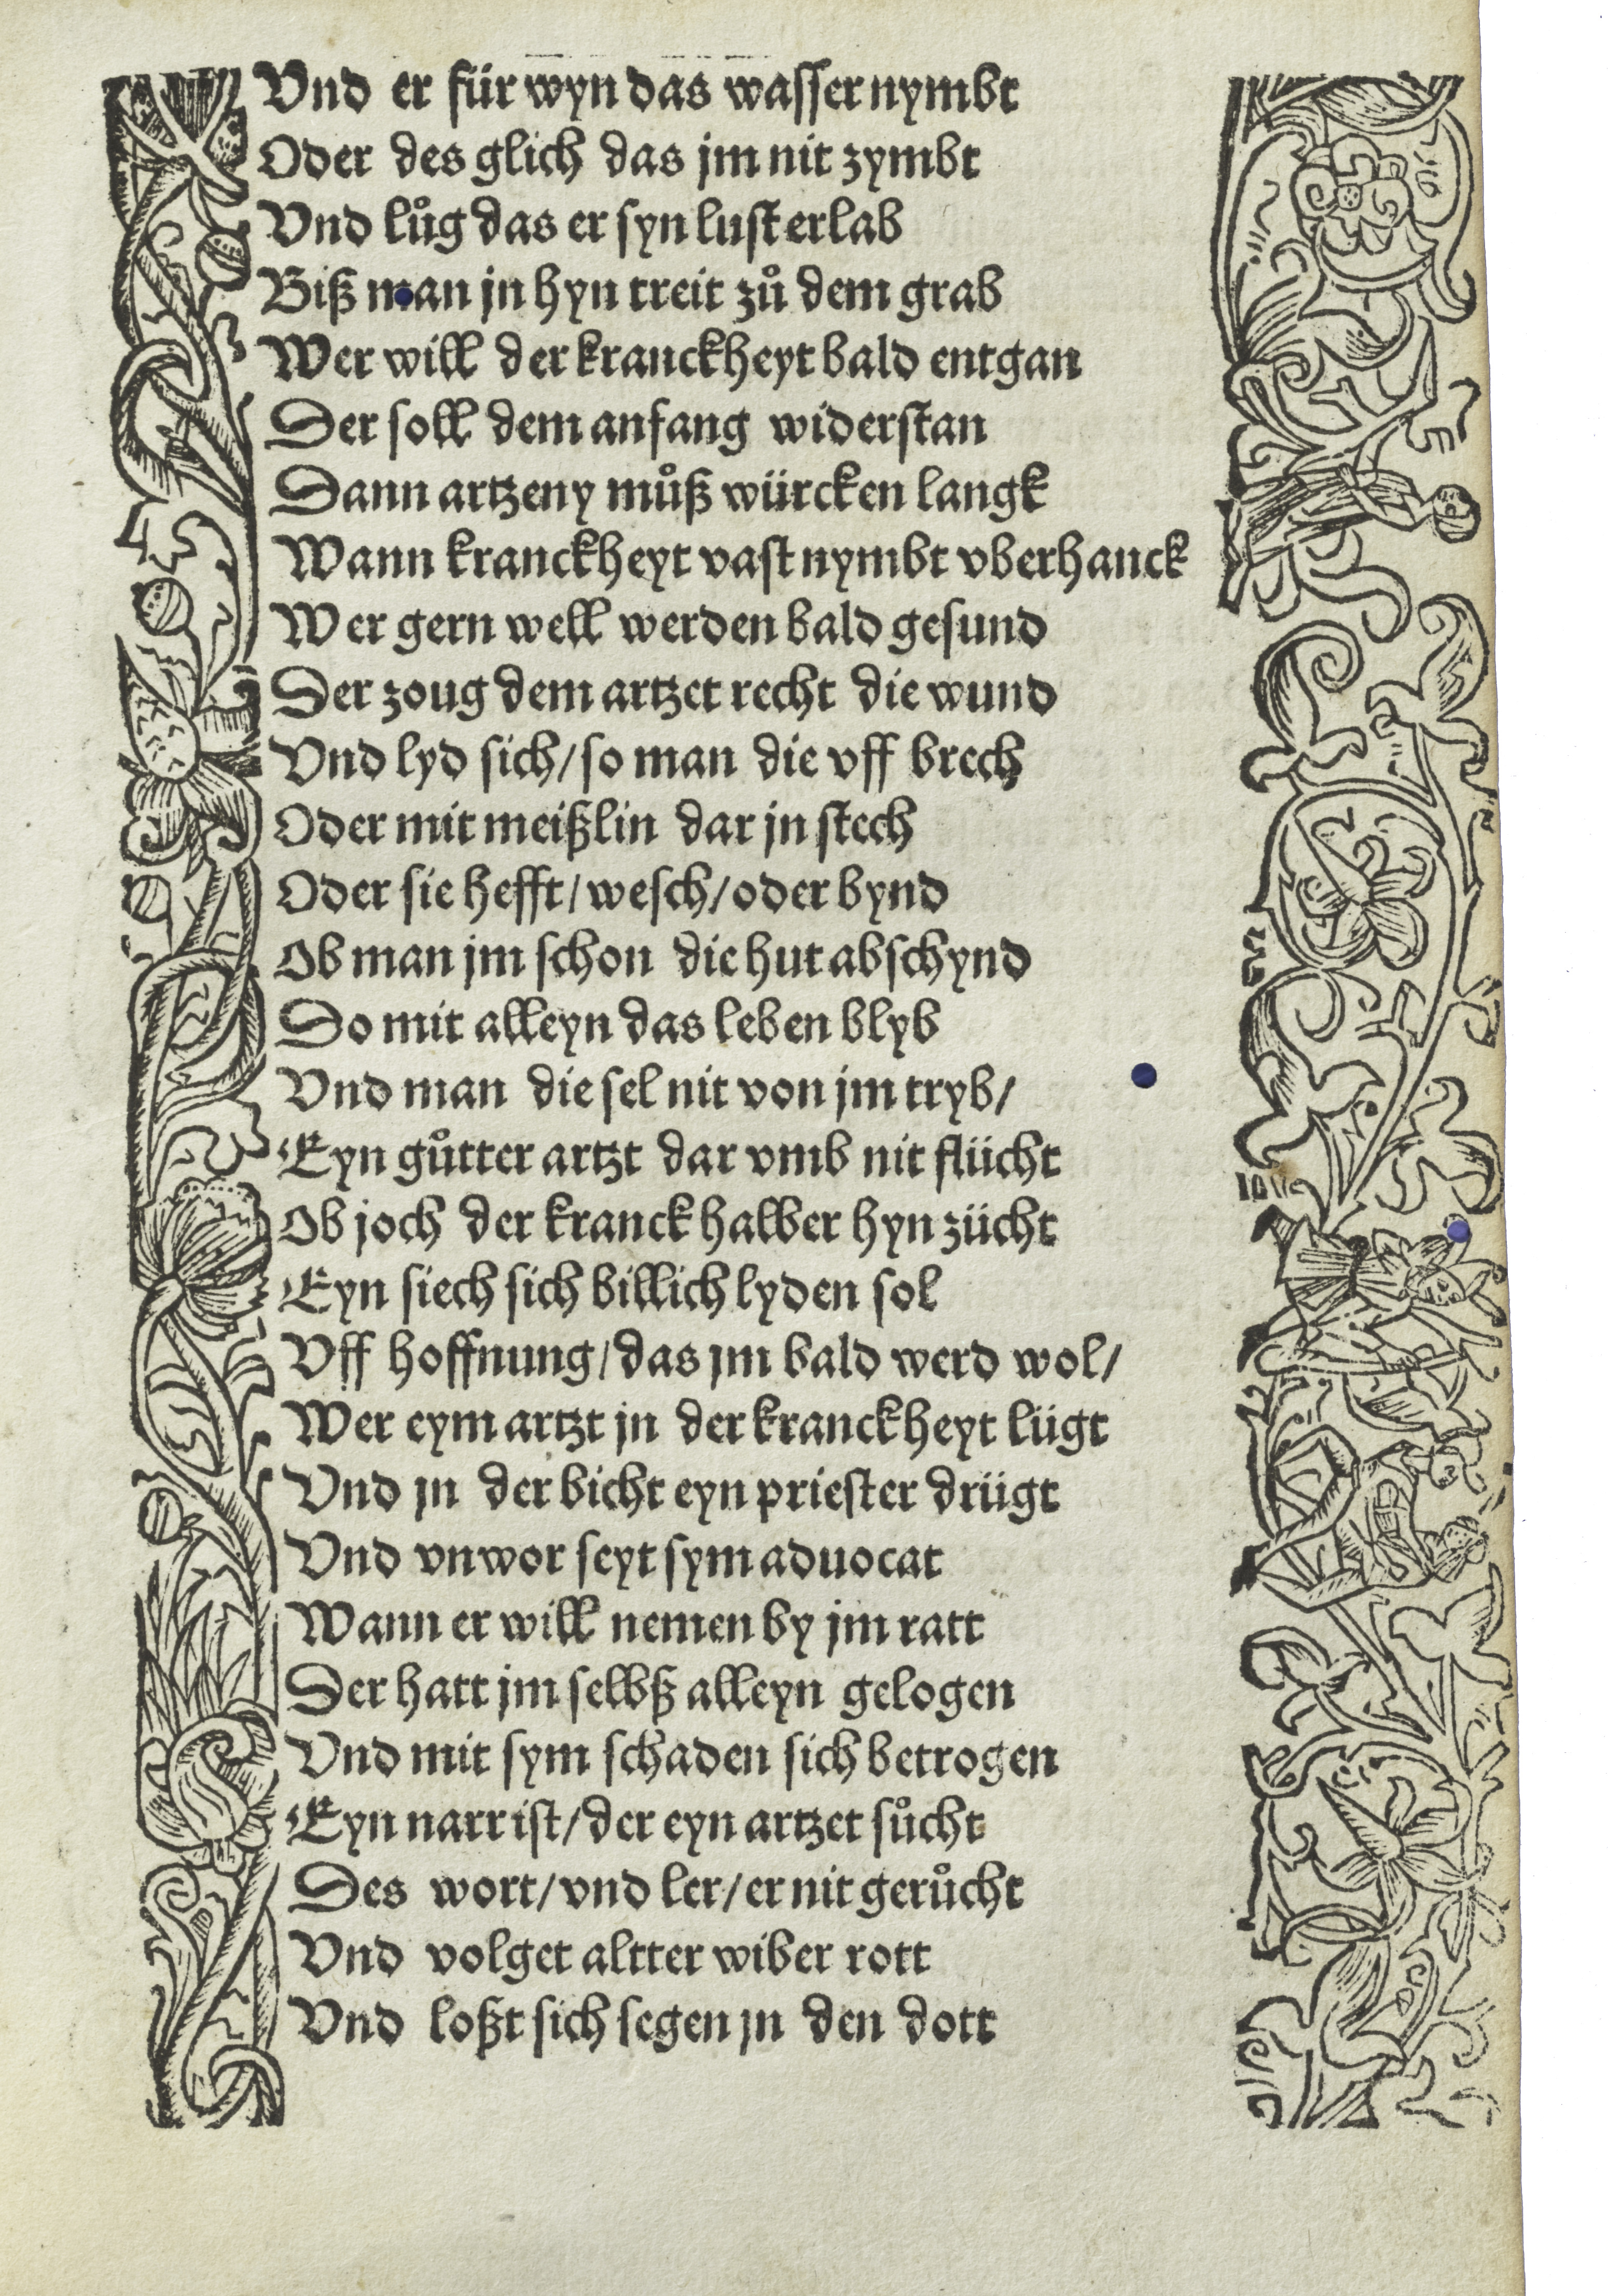 Vnd er für wyn das wasser nymbt
Oder des glich das jm nit zymbt
Vnd lůg das er syn lust erlab
Biß man jn hyn treit zů dem grab
Wer will der kranckheyt bald entgan
Der soll dem anfang widerstan
Dann artzeny můß würcken langk
Wann kranckheyt vast nymbt vberhanck
Wer gern well werden bald gesund
Der zoug dem artzet recht die wund
Vnd lyd sich/ so man die vff brech
Oder mit meißlin dar jn stech
Oder sie hefft/ wesch/ oder bynd
Ob man jm schon die hut abschynd
So mit alleyn das leben blyb
Vnd man die sel nit von jm tryb/
Eyn gůtter artzt dar vmb nit flücht
Ob joch der kranck halber hyn zücht
Eyn siech sich billich lyden sol
Vff hoffnung/ das jm bald werd wol/
Wer eym artzt jn der kranckheyt lügt
Vnd jn der bicht eyn priester drügt
Vnd vnwor seyt sym aduocat
Wann er will nemen by jm ratt
Der hatt jm selbß alleyn gelogen
Vnd mit sym schaden sich betrogen
Eyn narr ist/ der eyn artzet sůcht
Des wort/ vnd ler/ er nit gerůcht
Vnd volget altter wiber rott
Vnd loßt sich segen jn den dott